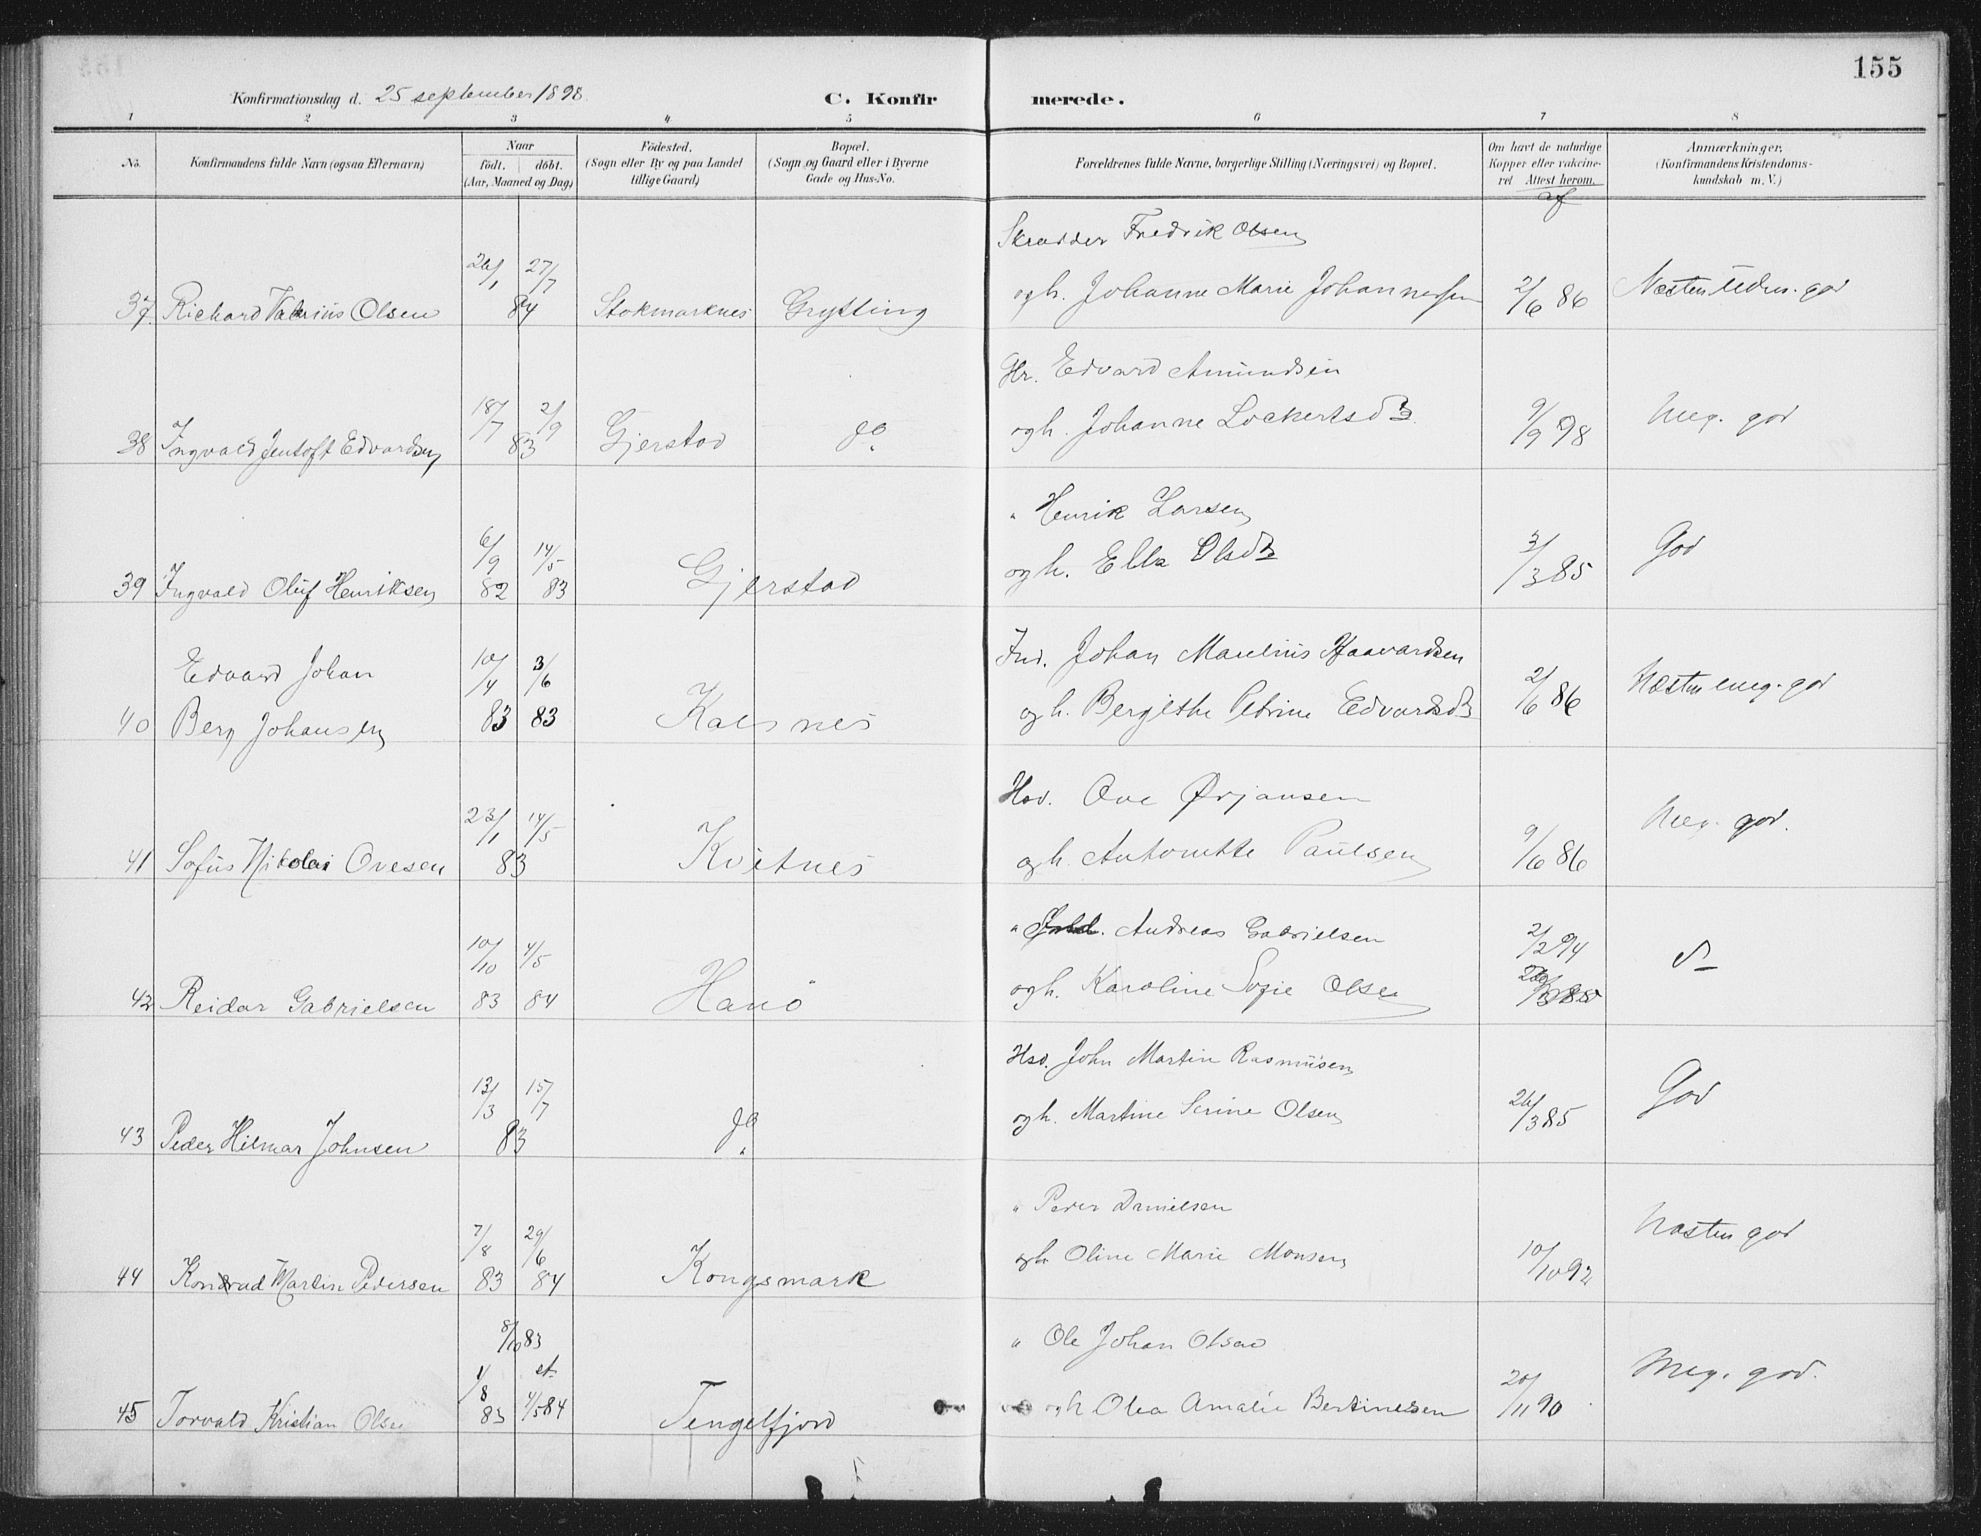 155
Konfirmationsdag d. 25 september 1898. C. Konfirmerede.
1 2 3 4 5 6 7 8
No. Konfirmandens fulde Navn (ogsaa Efternavn) Naar født. døbt. (Aar, Maaned og Dag) Fødested. (Sogn eller By og paa Landet tillige Gaard) Bopæl. (Sogn og Gaard eller i Byerne Gade og Hus-No. Forældrenes fulde Navne, borgerlige Stilling (Næringsvei) og Bopæl. Om havt de naturlige Kopper eller vakcineret Attest herom. af Anmærkninger, (Konfirmandens Kristendomskundskab m. V.)
Skrædder Fredrik Olsen
37. Richard Valerius Olsen 26/1 27/7 84 Stokmarknes Grytting og h. Johanne Marie Johannessen 2/6 86 Næsten Udm. god
Gr. Edvard Amundsen
38 Ingvald Jentoft Edvardsen 18/7 2/9 83 Gjerstad do. og h. Johanne Lockertsd 9/9 98 Meg. god
" Henrik Larsen
39 Ingvald Oluf Henriksen 6/9 82 14/5 83 Gjerstad og h. Ella Olsd 3/3 85 God
Edvard Johan Ind. Johan Marelius Haavardsen
40 Berg Johansen 10/4 83 3/6 83 Kalsnes og h. Bergithe Petrine Edvardsd 2/6 86 Næsten meg. god
Hsd. Ove Ørjansen
41 Sofus Nikolai Ovesen 23/1 14/5 83 Kvitnes og h. Antonette Paulsen 9/6 86 Meg. god.
" Andreas Gabrielsen 2/2 94
42 Reidar Gabrielsen 10/10 83 4/5 84 Hanö og h. Karoline Sofie Olsen
Hsd. John Martin Rasmussen
43 Peder Hilmar Johnsen 13/3 15/7 83 do. og h. Martine Serine Olsen 26/3 85 God
" Peder Danielsen
44 Konrad Martin Pedersen 7/8 83 29/6 84 Kongsmark og h. Oline Marie Monsen 10/10 92 Næsten god
8/10 83 " Ole Johan Olsen
45 Torvald Kristian Olsen 1/8 83 st. 4/5 84 Tengelfjord og h Olea Amalie Bertinesen 20/11 90 Meg. god.